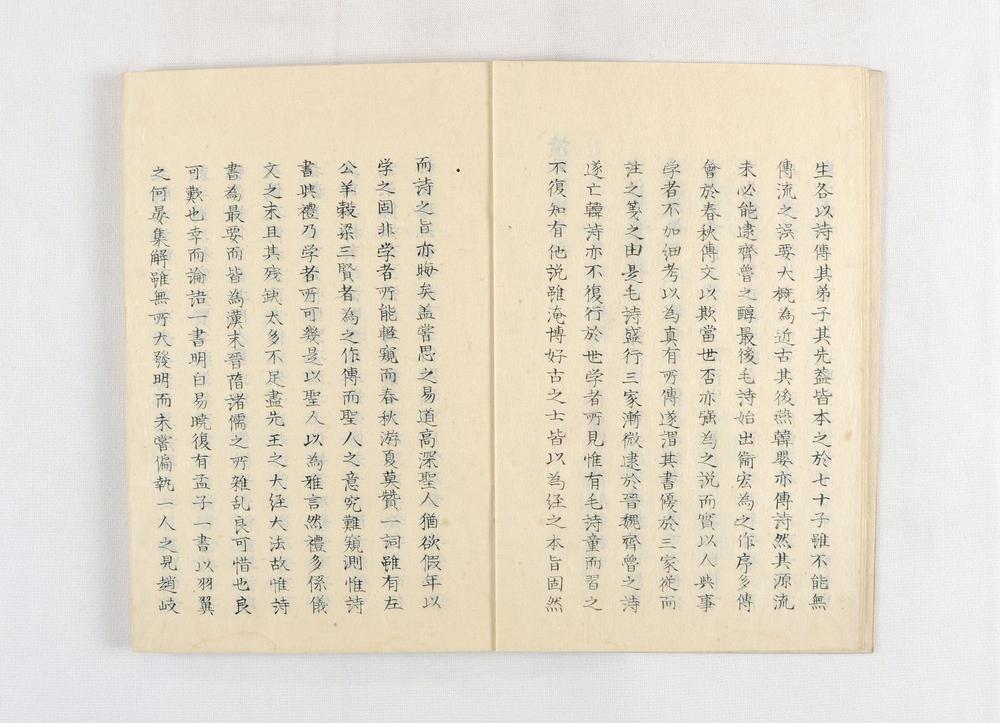 生各以詩傳其弟子其先葢皆本之於七十子雖不能無
傳流之誤要大概為近古其後燕韓嬰亦傳詩然其源流
未必能逮齊魯之醇最後毛詩始出衞宏為之作序多傳
會於春秋傳文以欺當世否亦强為之説而實以人與事
学者不加細考以為真有所傳遂謂其書優於三家従而
註之箋之由是毛詩盛行三家漸微逮於晉魏齊魯之詩
遂亡韓詩亦不復行於世学者所見惟有毛詩童而習之
不復知有他説雖淹博好古之士皆以為経之本旨固然
而詩之旨亦晦矣葢嘗思之易道高深聖人猶欲假年以
学之固非学者所能輕窺而春秋游夏莫贊一詞雖有左
公羊穀梁三賢者為之作傳而聖人之意究難窺測惟詩
書與禮乃学者所可幾是以聖人以為雅言然禮多係儀
文之末且其残缺太多不足盡先王之大経大法故惟詩
書為最要而皆為漢末晋隋諸儒之所雜乱良可惜也良
可歎也幸而論語一書明白易暁復有孟子一書以羽翼
之何晏集解雖無所大發明而未嘗偏執一人之見趙岐